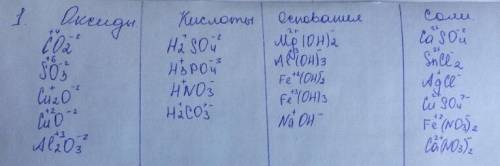 1. Оксиды Кислоты Основания Соли
C⁺⁴O₂⁻² H₂⁺SO₄⁻² Mg²⁺(OH)₂⁻ Ca²⁺SO₄²⁻
S⁺⁶O₃⁻² H₃⁺PO₄⁻³ Al³⁺(OH)₃⁻ SnCl₂⁻
Cu₂⁺O⁻² H⁺NO₃⁻ Fe⁺²(OH)₂⁻ Ag⁺Cl⁻
Cu⁺²O⁻² H₂⁺CO₃²⁻ Fe⁺³(OH)₃⁻ Cu⁺²SO₄²⁻
Al₂⁺³O₃⁻² Na⁺OH⁻ Fe⁺²(NO₃)₂⁻
Ca⁺²(NO₃)₂⁻